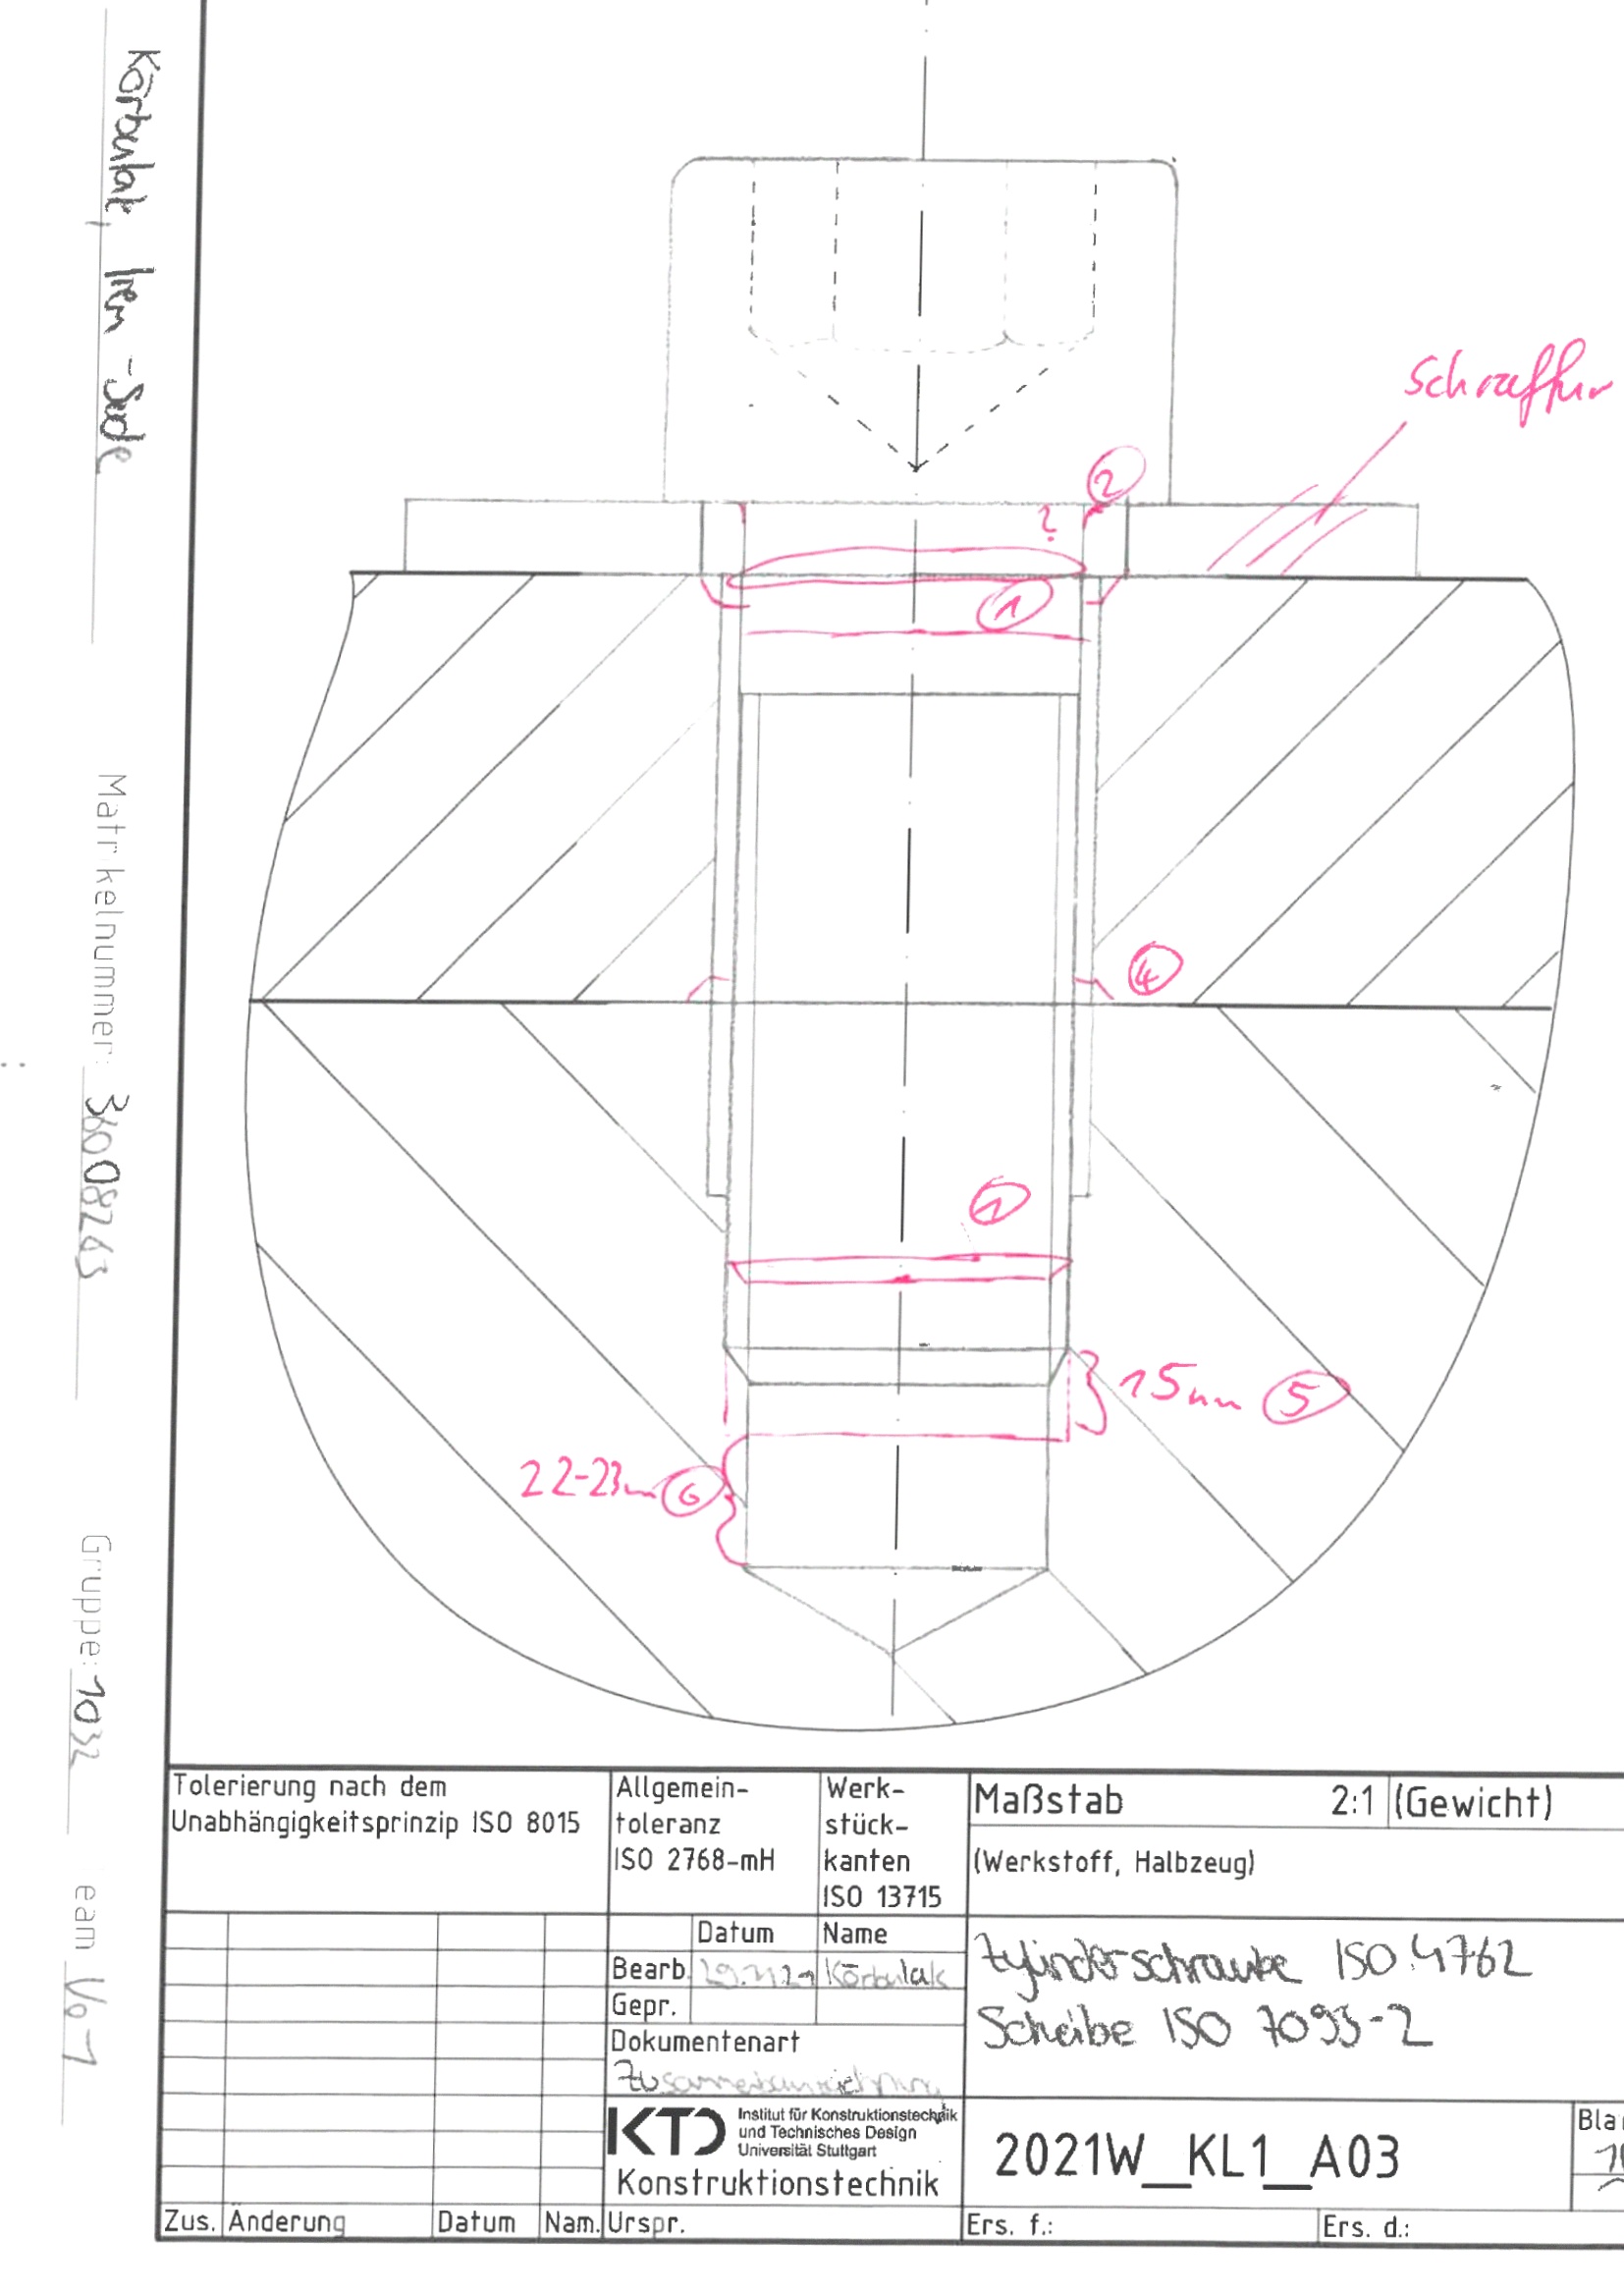 Körbulak, Irem-Sude
Matrikelnummer: 3608263
Gruppe: 1032
eam Vo1
Schraffur
2
?
1
4
1
15mm 5
22-23mm 6
Tolerierung nach dem
Unabhängigkeitsprinzip ISO 8015
Allgemein-
toleranz
ISO 2768-mH
Werk-
stück-
kanten
ISO 13715
Maßstab 2:1 (Gewicht)
(Werkstoff, Halbzeug)
Datum Name
Bearb. Körbulak
Gepr.
Dokumentenart
Zusammenbauzeichnung
Zylinderschraube ISO 4762
Scheibe ISO 7093-2
KTD Institut für Konstruktionstechnik
und Technisches Design
Universität Stuttgart
Konstruktionstechnik
2021W_KL1_A03
Bla
Zus. Änderung Datum Nam. Urspr. Ers. f.: Ers. d.: